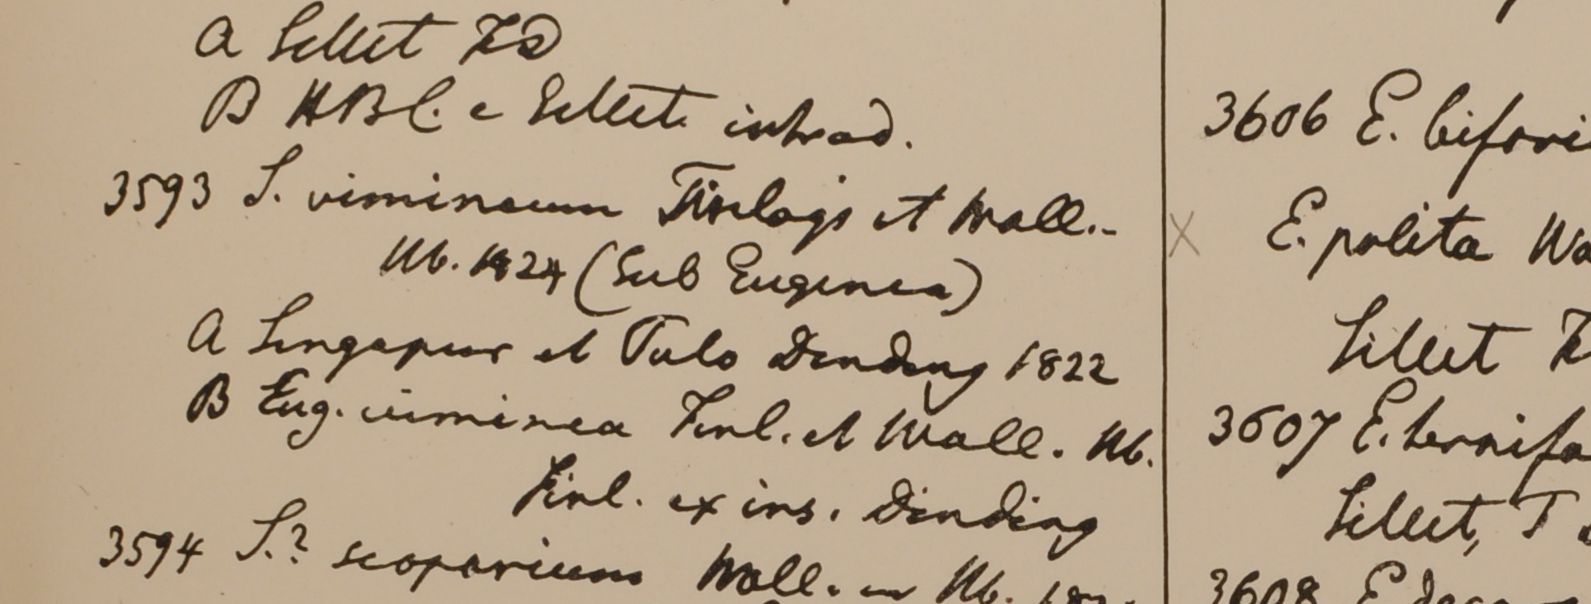 A Sillet FD
B HBC. e Sillet introd.
3593 S. vimineum Finlays et Wall.-
Hb. 1824 (Sub Eugenea)
A Singapur et Pulo Dinding 1822
B Eug. viminea Finl. et Wall. Hb.
Finl. ex ins. Dinding
3594 S.? scoparium Wall. in Hb.
3606 E. bifari
E. polita Wa
Sillet
3607 E. ternifo
Sillet, T
3608 E.